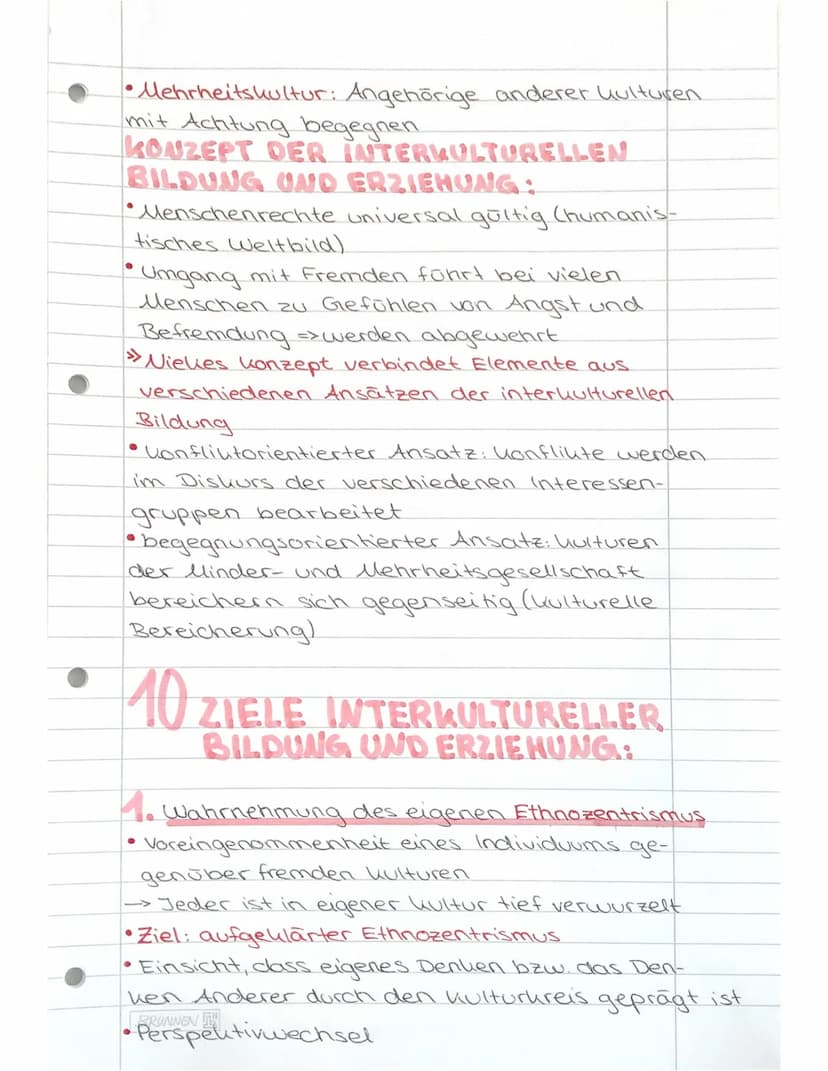 • Mehrheitskultur: Angehörige anderer Kulturen
mit Achtung begegnen
KONZEPT DER INTERKULTURELLEN
BILDUNG UND ERZIEHUNG:
• Menschenrechte universal gültig (humanis-
tisches Weltbild)
• Umgang mit Fremden führt bei vielen
Menschen zu Gefühlen von Angst und
Befremdung => werden abgewehrt
» Niekes Konzept verbindet Elemente aus
verschiedenen Ansätzen der interkulturellen
Bildung
• Konfliktorientierter Ansatz: Konflikte werden
im Diskurs der verschiedenen Interessen-
gruppen bearbeitet
• begegnungsorientierter Ansatz: Kulturen
der Minder- und Mehrheitsgesellschaft
bereichern sich gegenseitig (kulturelle
Bereicherung)
10 ZIELE INTERKULTURELLER
BILDUNG UND ERZIEHUNG:
1. Wahrnehmung des eigenen Ethnozentrismus
• Voreingenommenheit eines Individuums ge-
genüber fremden Kulturen
→ Jeder ist in eigener Kultur tief verwurzelt
• Ziel: aufgeklärter Ethnozentrismus
• Einsicht, dass eigenes Denken bzw. das Den-
ken Anderer durch den Kulturkreis geprägt ist
BRUNNEN
• Perspektivwechsel